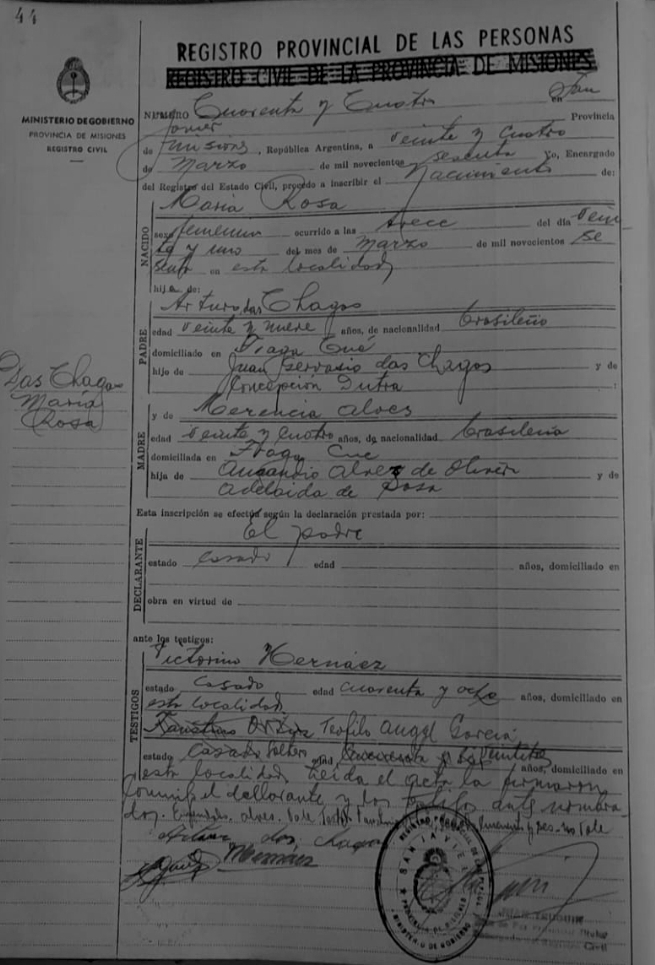 44
REGISTRO PROVINCIAL DE LAS PERSONAS
REGISTRO CIVIL DE LA PROVINCIA DE MISIONES
MINISTERIO DE GOBIERNO
PROVINCIA DE MISIONES
REGISTRO CIVIL
NUMERO Cuarenta y Cuatro en San
Javier Provincia
de Misiones, República Argentina, a veinte y cuatro
de Marzo de mil novecientos sesenta Yo, Encargado
del Registro del Estado Civil, procedo a inscribir el Nacimiento de:
NACIDO
María Rosa
sexo femenino ocurrido a las trece del día vein
te y uno del mes de Marzo de mil novecientos se
senta en esta localidad
hija de:
PADRE
Arturo das Chagas
edad veinte y nueve años, de nacionalidad brasileño
domiciliado en
hijo de Juan Gervasio das Chagas y de
Concepción Dutra
Das Chagas
María
Rosa
MADRE
y de Merencia Alves
edad veinte y cuatro años, de nacionalidad brasileña
domiciliada en
hija de Alves de Olivera y de
Adelaida de Rosa
Esta inscripción se efectúa según la declaración prestada por:
El padre
DECLARANTE
estado casado edad años, domiciliado en
obra en virtud de
ante los testigos:
TESTIGOS
Victorino Hernáez
estado Casado edad cuarenta y ocho años, domiciliado en
esta localidad
Faustino Teofilo Angel Garcia
estado Casado edad años, domiciliado en
esta localidad Leida el acta la firmaron
conmigo el declarante y los testigos antes nombra
dos. Vale
Arturo das Chagas
Hernáez
REGISTRO PROVINCIAL DE LAS PERSONAS
SAN JAVIER
MINISTERIO DE GOBIERNO